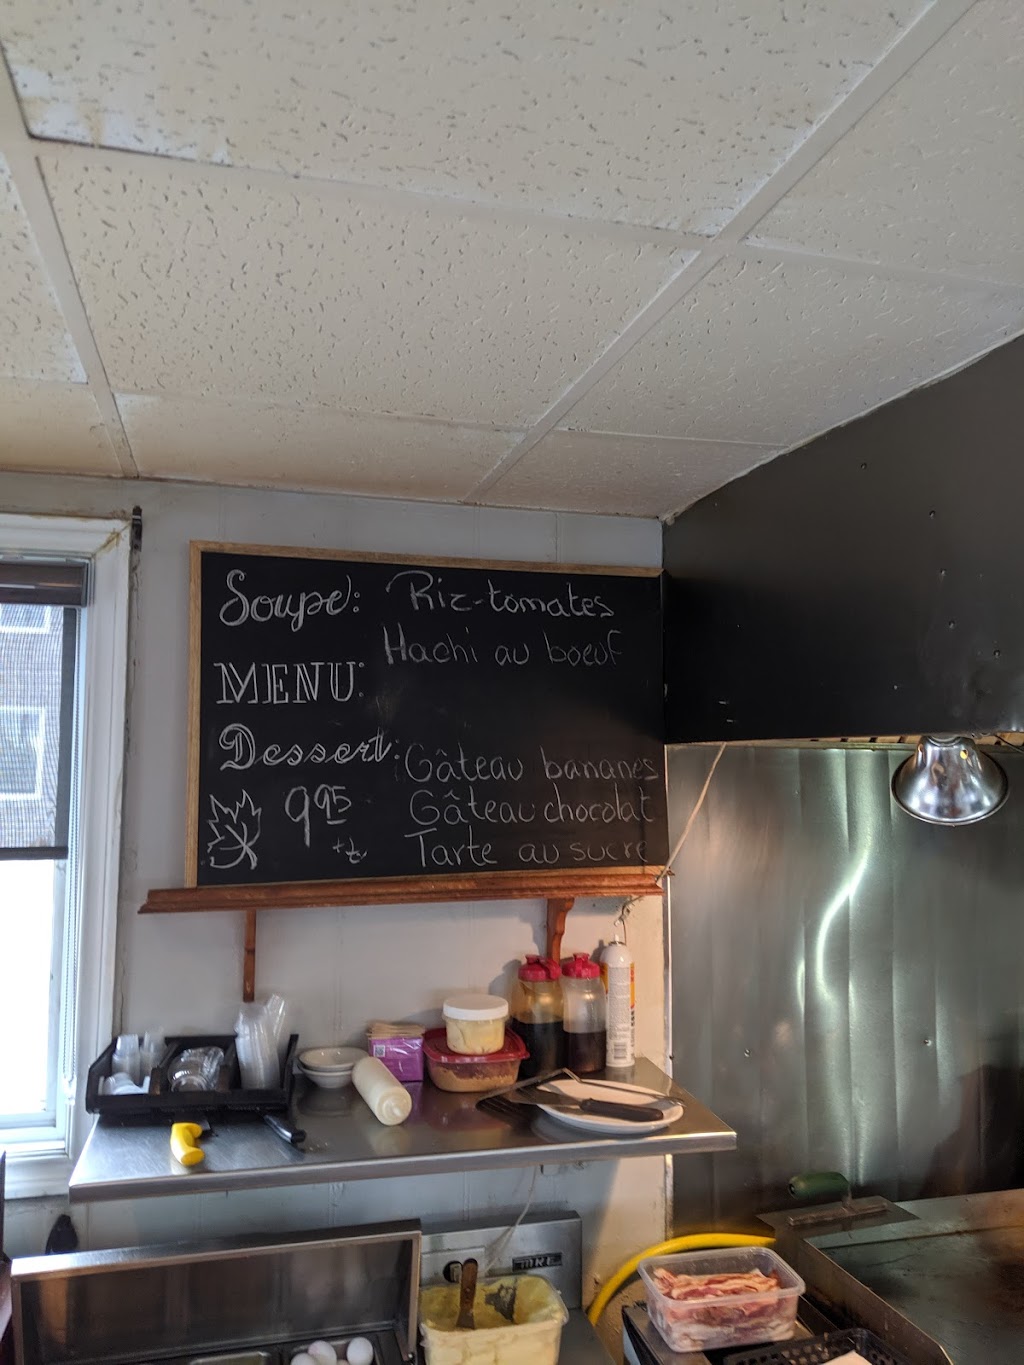 Soupe: Riz-tomates
Hachi au boeuf
MENU:
Dessert: Gâteau bananes
9.95 Gâteau chocolat
+tx Tarte au sucre
MKE